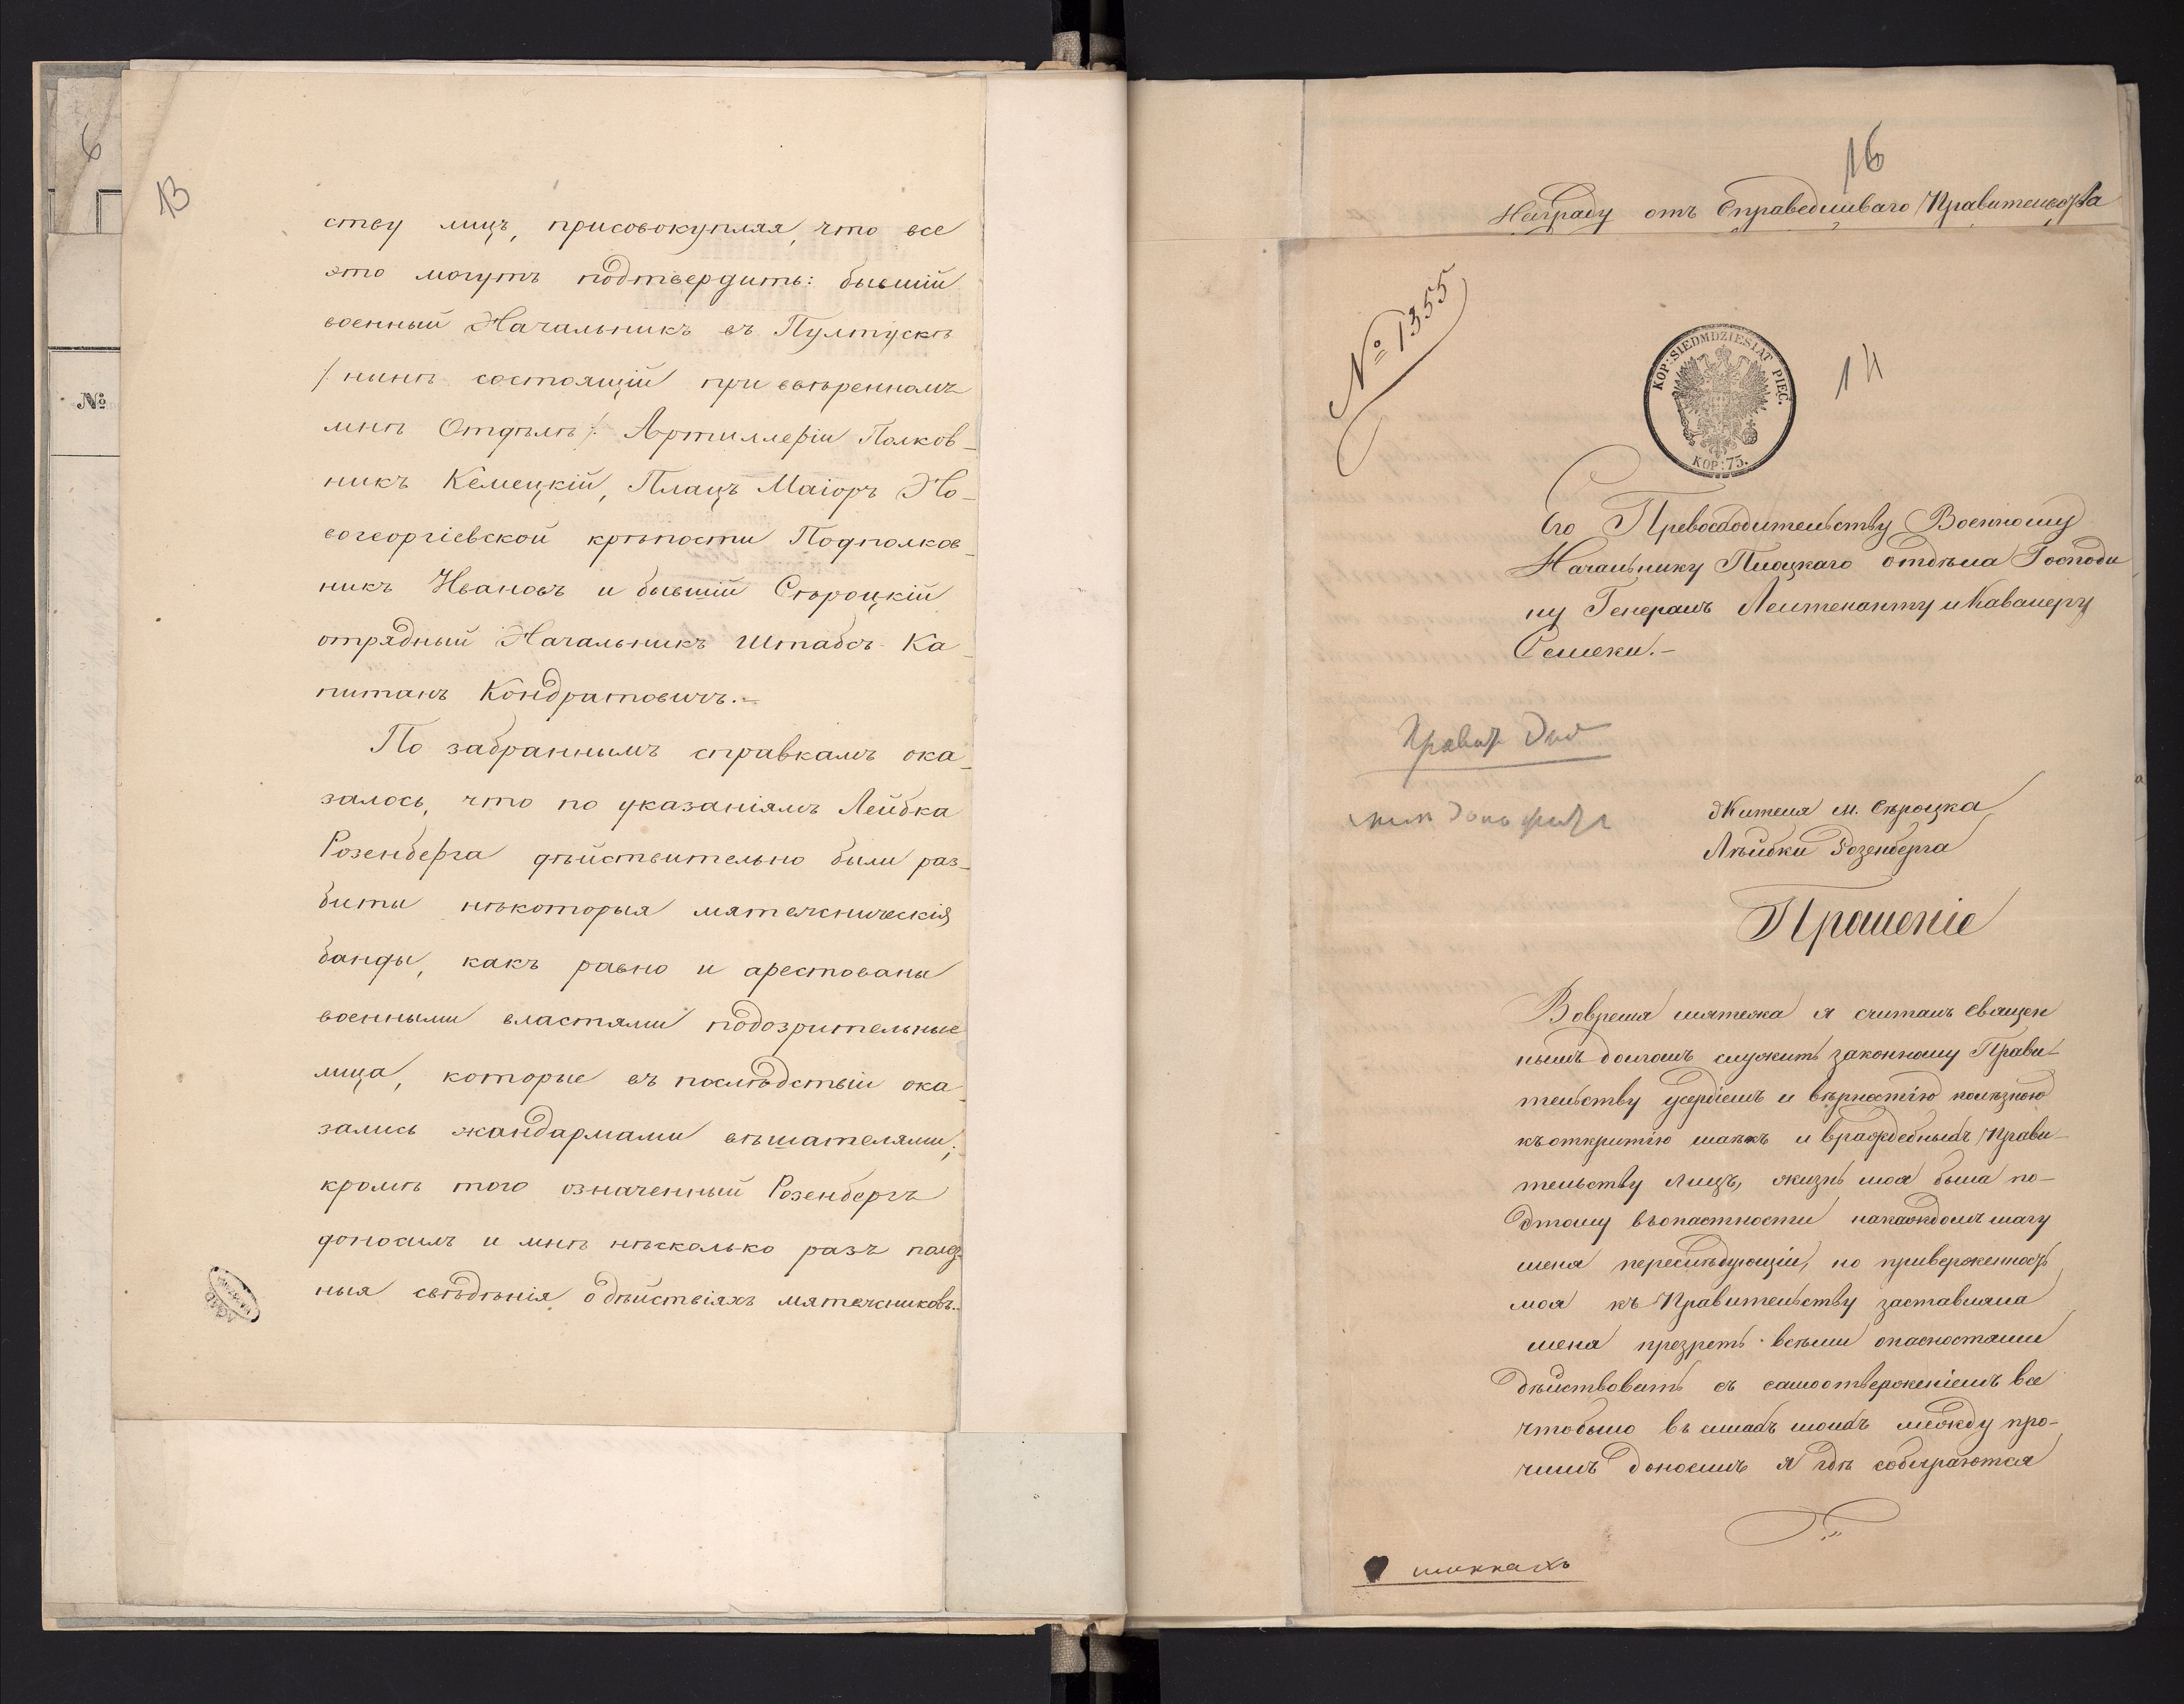 6
№
13
ству лицъ, присовокупляя, что все
это могутъ подтвердить: бывшій
военный Начальникъ въ Пултускѣ
/: нынѣ состоящій при ввѣренномъ
мнѣ Отдѣлѣ :/ Артиллеріи Полков-
никъ Кемецкій, Плацъ Маіоръ Но-
вогеоргіевской крѣпости Подполков-
никъ Ивановъ и бывшій Сѣроцкій
отрядный Начальникъ Штабсъ-Ка-
питанъ Кондратовичъ.-
По забраннымъ справкамъ ока-
залось, что по указаніямъ Лейбка
Розенберга дѣйствительно были раз-
биты нѣкоторыя мятежническія
банды, какъ равно и арестованы
военными властями подозрительные
лица, которые въ послѣдствіи ока-
зались жандармами вѣшателями;
кромѣ того означенный Розенбергъ
доносилъ и мнѣ нѣсколько разъ полез-
ныя свѣдѣнія о дѣйствіяхъ мятежниковъ.
16
Награду отъ Справедливаго Правительства
№ 1355
KOP: SIEDMDZIESIĄT PIĘĆ.
KOP: 75.
14
Его Превосходительству Военному
Начальнику Плоцкаго отдѣла Господи
ну Генералъ Лейтенанту и Кавалеру
Семеки.-
Жителя м. Сѣроцка
Лѣйбки Розенберга
Прошеніе
Вовремя мятежа я считалъ Священ
нымъ долгомъ служить законному Прави-
тельству усердіемъ и вѣрностію полѣзною
къ открытію шаекъ и враждебныхъ Прави-
тельству лицъ, жизнь моя была по-
этому въ опастности на каждомъ шагу
меня переслѣдующіи, но приверженность
моя къ Правительству заставляла
меня презреть всѣми опасностями
дѣйствовать съ самоотверженіемъ все
что было въ силахъ моихъ между про-
чимъ доносилъ я гдѣ собираются